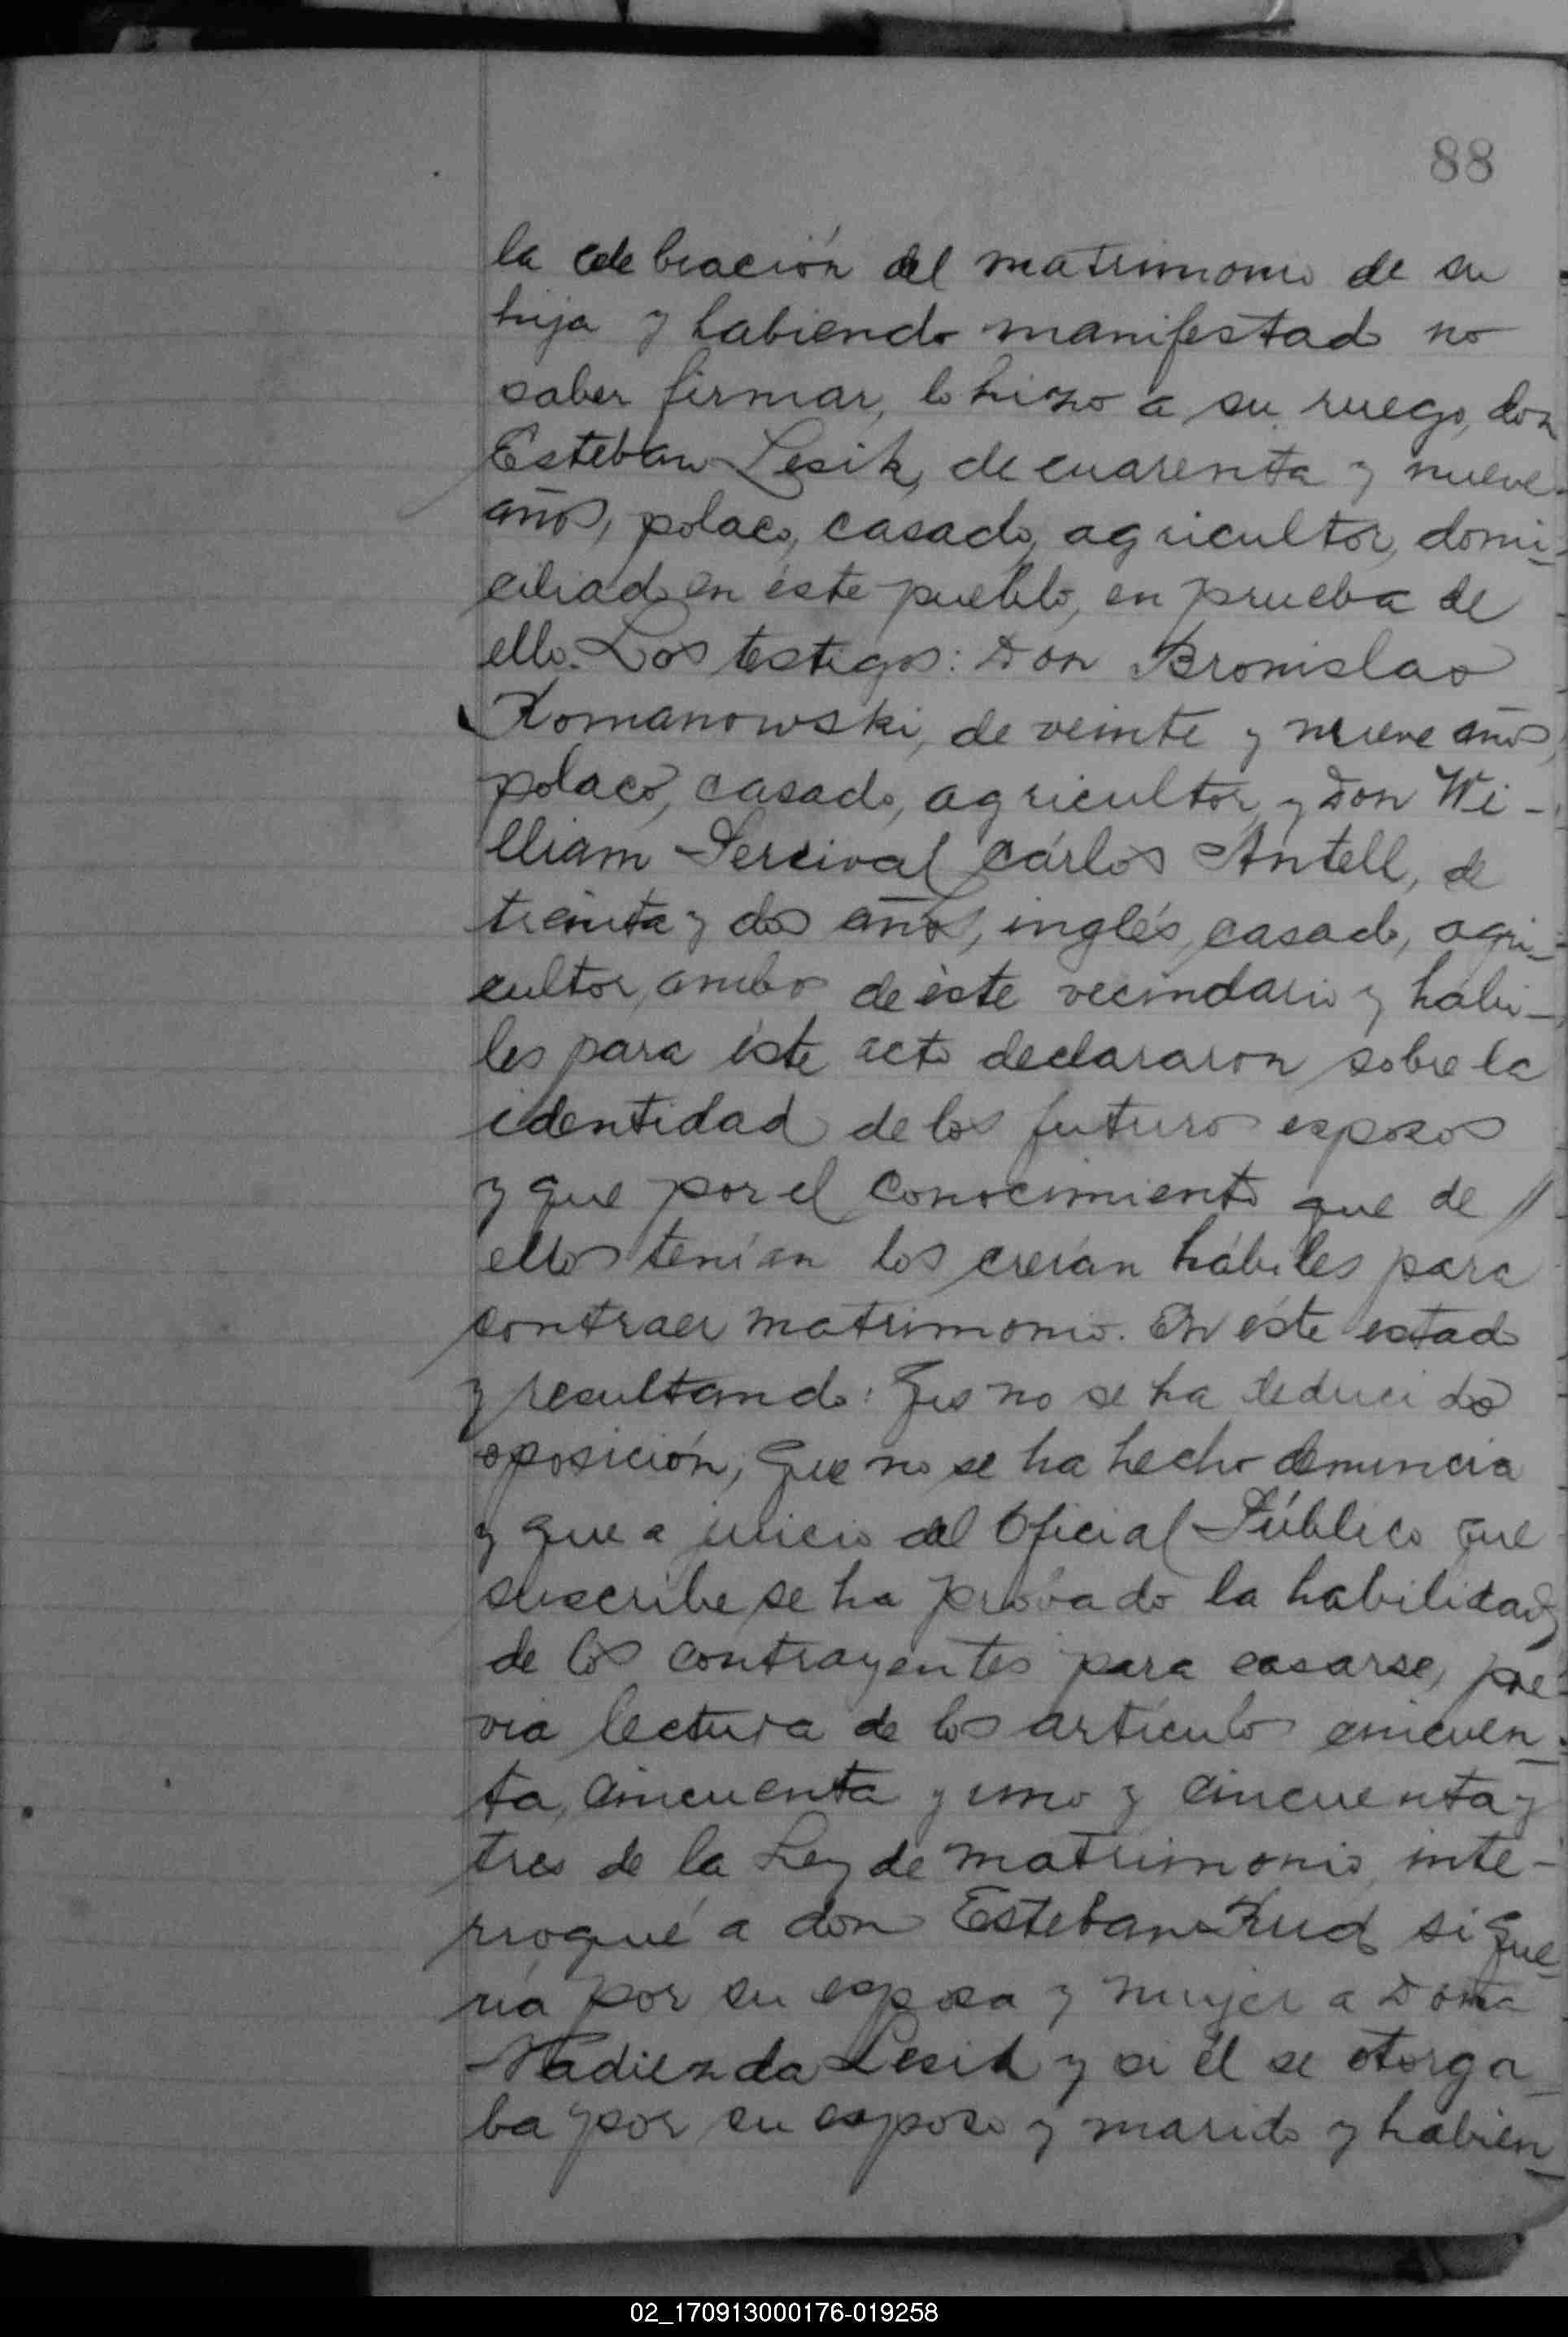 88
la celebración del matrimonio de su
hija y habiendo manifestado no
saber firmar, lo hizo a su ruego, don
Esteban Lesik, de cuarenta y nueve
años, polaco, casado, agricultor, domi-
ciliado en éste pueblo, en prueba de
ello. Los testigos: Don Bronislao
Romanowski, de veinte y nueve años,
polaco, casado, agricultor, y Don Wi-
lliam Percival Cárlos Antell, de
treinta y dos años, inglés, casado, agri-
cultor, ambos de éste vecindario y hábi-
les para éste acto declararon sobre la
identidad de los futuros esposos
y que por el conocimiento que de //
ellos tenían los creían hábiles para
contraer matrimonio. En éste estado
y resultando: Que no se ha deducido
oposición, Que no se ha hecho denuncia
y que a juicio del Oficial Público que
suscribe se ha probado la habilidad
de los contrayentes para casarse, pre-
via lectura de los artículos cincuen-
ta, cincuenta y uno y cincuenta y
tres de la Ley de matrimonio, inte-
rrogué a don Esteban Kud si que-
ría por su esposa y mujer a Doña
Nadiezda Lesik y si él se otorga-
ba por su esposo y marido y habien-
02_170913000176-019258